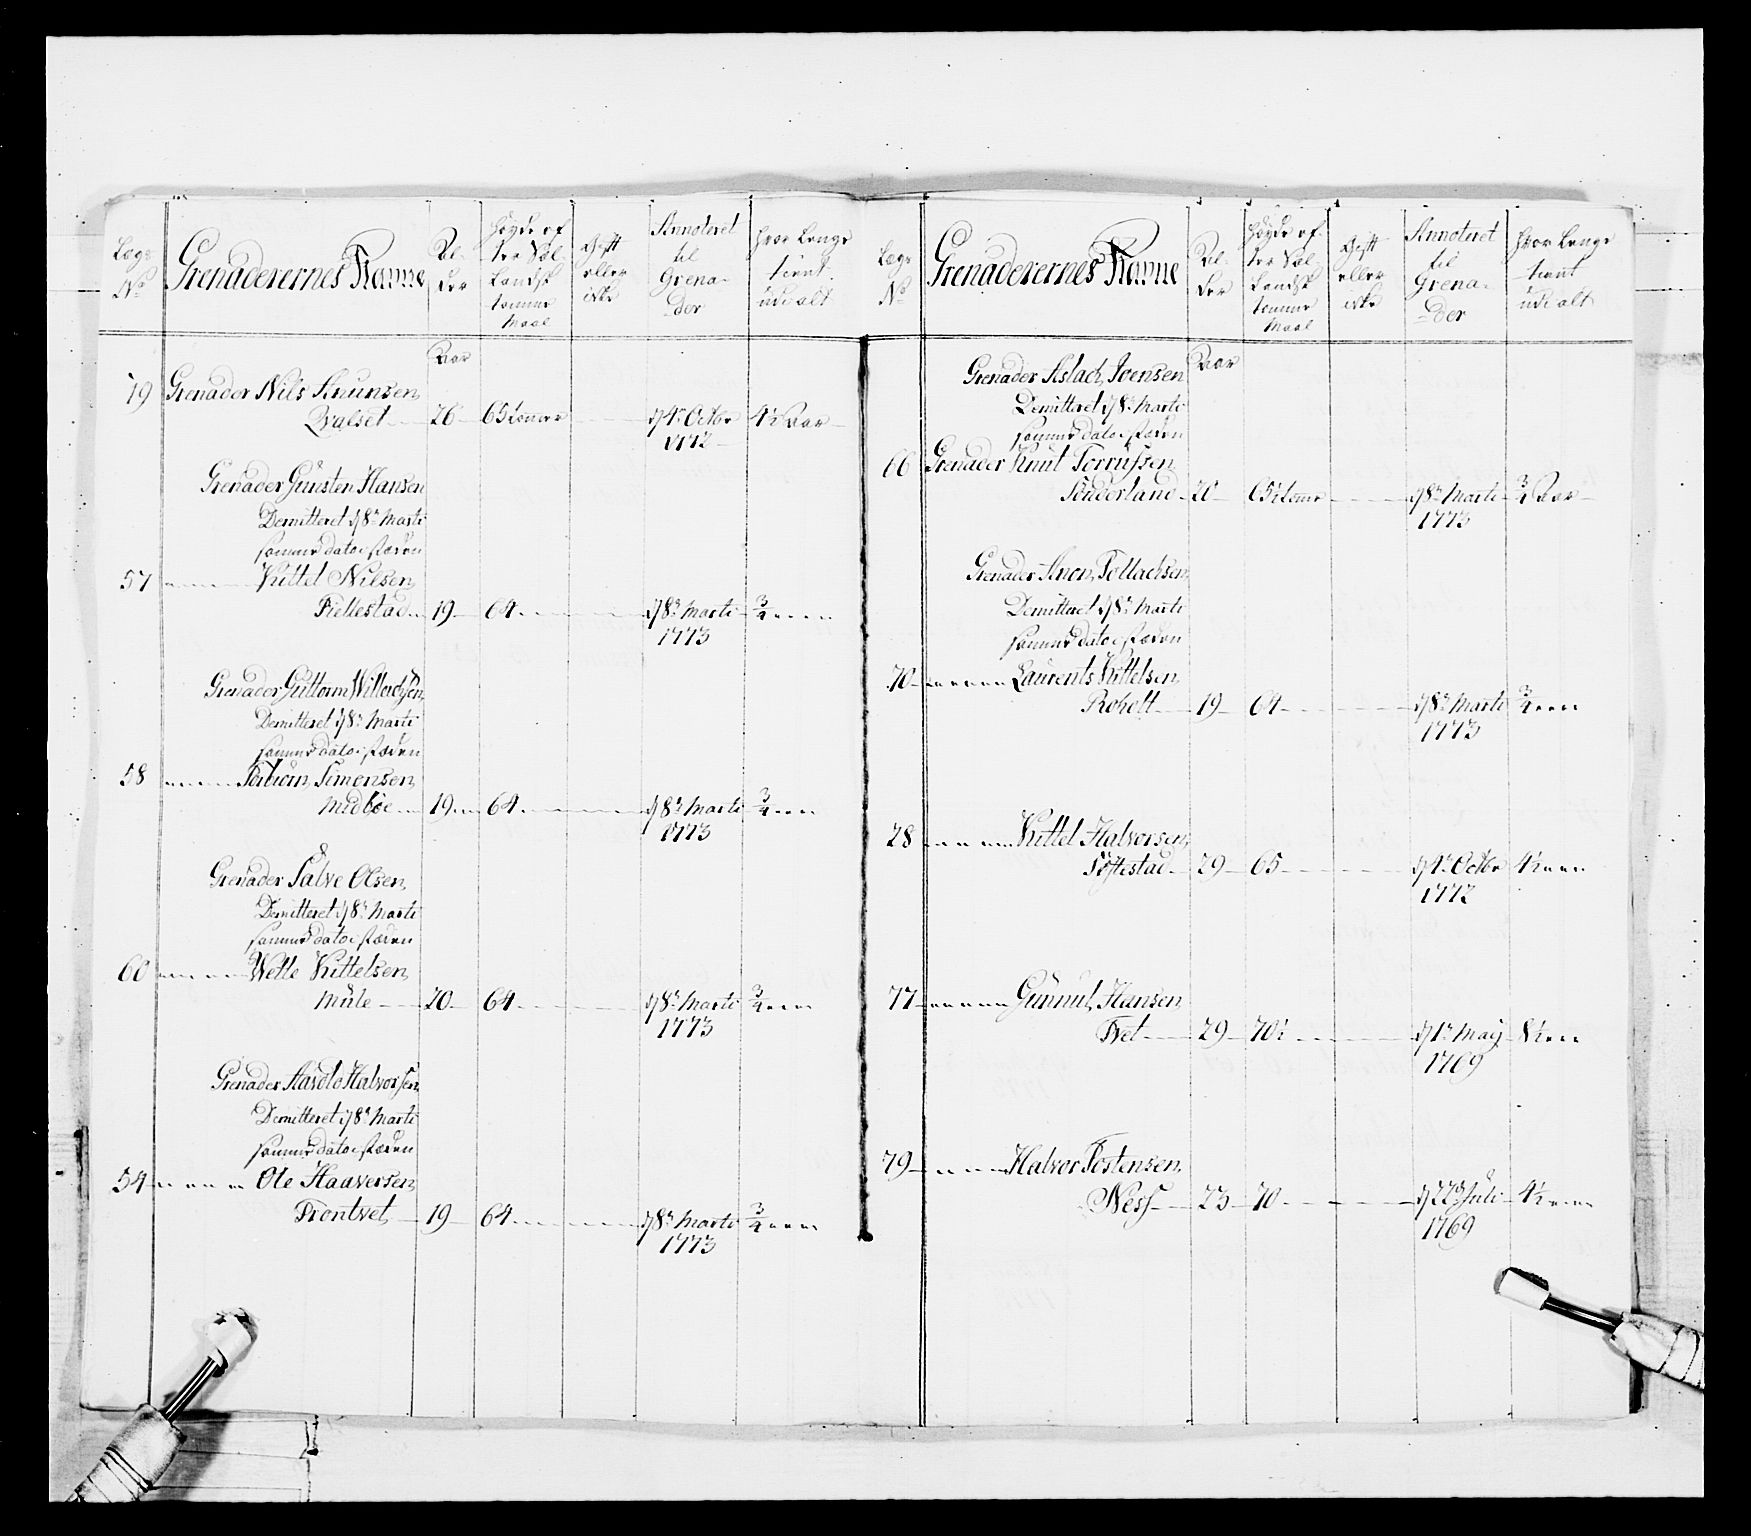 Lægs No
Grenaderernes Nafne
Al-der
Høyde efter Sællandsk tomme Maal
Gift eller ikke
Annoteret til Grenader
Hvor Længe tient udi alt
Aar
19 Grenader Nils Knunsen
Valset 26 65 tomer d 4de Octbr 4½ Aar
1772
Grenader Gunsten Hansen
Demitteret d 8de Marti
samme dato i stæden
57 Kittel Nilsen
Fiellestad 19 64 d 8de Marti ¾
1773
Grenader Guttorm
Demitteret d 8de Marti
samme dato i stæden
58 Simensen
Medböe 19 64 d 8de Marti ¾
1773
Grenader Salve Olsen
Demitteret d 8de Marti
samme dato i stæden
60 Wetle Kittelsen
Mule 20 64 d 8de Marti ¾
1773
Grenader Halvorsen
Demitteret d 8de Marti
samme dato i stæden
54 Ole Haaversen
Trontvet 19 64 d 8de Marti ¾
1773
Lægs No
Grenaderernes Nafne
Al-der
Høyde efter Sællandsk tomme Maal
Gift eller ikke
Annoteret til Grenader
Hvor Længe tient udi alt
Aar
Grenader Aslach Joensen
Demitteret d 8de Marti
samme dato i stæden
66 Grenader Knut
Sönderland 20 65½ tome d 8de Marti ¾ Aar
1773
Grenader Anon Tollachsen
Demitteret d 8de Marti
samme dato i stæden
70 Laurents Kittelsen
19 64 d 8de Marti ¾
1773
28 Kittel Halvorsen
Söftestad 29 65 d 4de Octbr 4½
1772
77 Gunnul Hansen
Tvet 29 70½ d 1de May 8½
1769
79 Halvor Tostensen
Ness 23 70 d 22de Juli 4½
1769